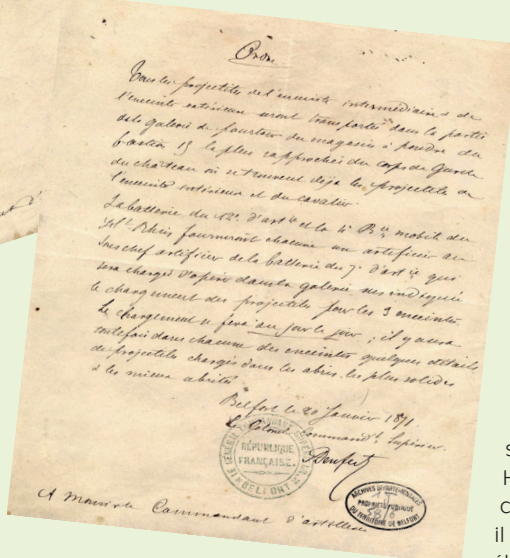 Ordre
Tous les projectiles de l'enceinte intermédiaire & de
l'enceinte extérieure seront transportés dans la partie
de la galerie de pourtour du magasin à poudre du
bastion 15 la plus rapprochée du corps de garde
du château où se trouvent déjà les projectiles de
l'enceinte intérieure et du cavalier.
La batterie du 12e d'artie et la 4e Bie mobile du
Ht Rhin fourniront chacune un artificier au
sous chef artificier de la batterie du 7e d'artie qui
sera chargé d'opérer dans la galerie sus indiquée
le chargement des projectiles pour les 3 enceintes.
Le chargement se fera au jour le jour ; il y aura
toutefois dans chacune des enceintes quelques
de projectiles chargés dans les abris les plus solides
& les mieux abrités
Belfort le 20 Janvier 1871
Le Colonel Commandt Supérieur
Denfert
RÉPUBLIQUE
FRANÇAISE
BELFORT
ARCHIVES DÉPARTEMENTALES
PROPRIÉTÉ PUBLIQUE
DU TERRITOIRE DE BELFORT
A Monsieur le Commandant d'artillerie
s
H
c
il